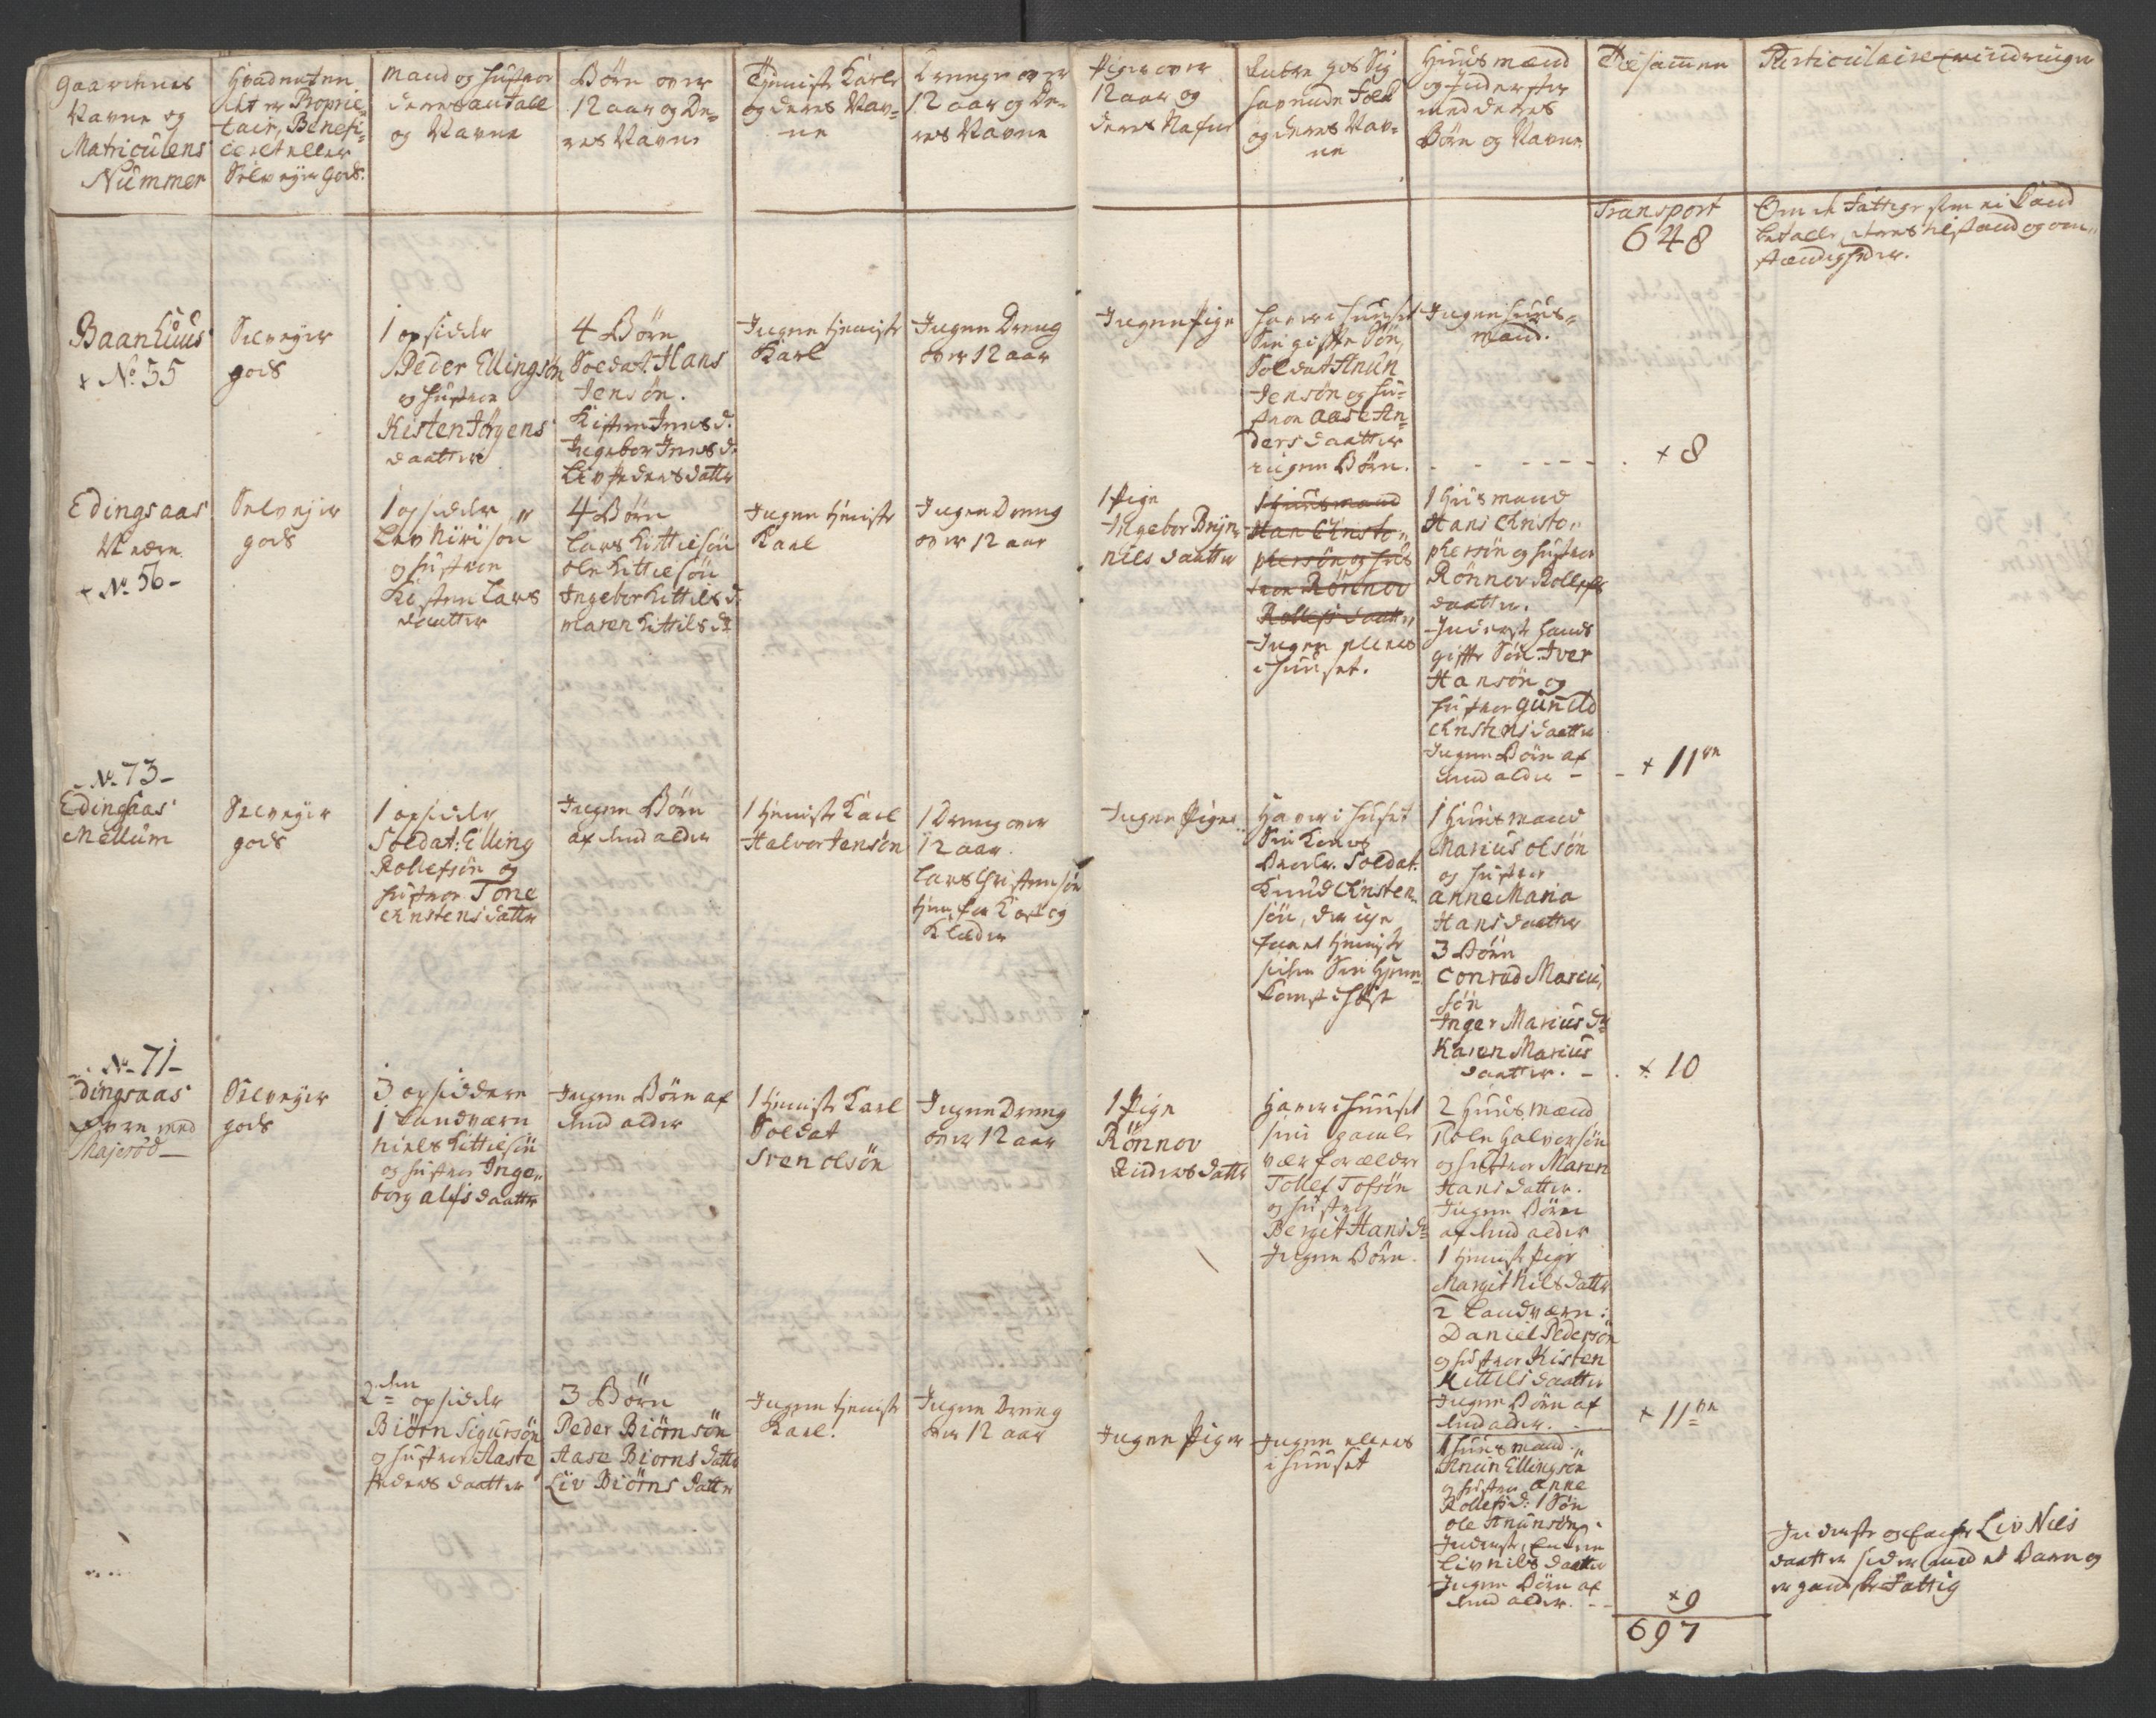 Gaardenes
Navne og
Matriculens
Nummer
Hvad enten
det er Proprie
tair, Benefi=
ceret eller
Selveyer Gods.
Mand og Hustroe
deres antall
og Navne
Børn over
12 aar og De=
res Navne
Tjeniste Karle
og deres Nav=
ne
Drenge over
12 aar og De=
res Navne
Piger over
12 aar og
deres Nafne
Andre hos Sig
havende Folk
og deres Nav=
ne
Huusmænd
og Inderster
med deres
Børn og Navne
Tilsammen
Particulaire Erindringer
Transport
648
Om de Fattige som ei kand
betalle, deres tilstand og om=
stændigheder.
Baanhuus
+ No. 55
Selveyer
gods
1 opsidder
Peder Ellingsøn
og hustroe
Kisten Jørgens
daatter
4 Børn
Soldat: Hans
Jensøn.
Kisten Jens d.
Ingebor Jens d.
Liv Peders datter
Ingen tjeniste
Karl
Ingen Dreng
over 12 aar
Ingen Pige
haver i huuset
Sin gifte Søn,
Soldat Anun
Jensøn og hu=
stroe Aase An=
ders daatter
ingen Børn.
Ingen huus=
mand.
+ 8
Edingsaas
Nedre
+ No. 56 -
Selveyer
gods
1 opsidder
og hustroe
Kisten Lars
daatter
4 Børn
Lars Kittilsøn
Ole Kittilsøn
Ingebor Kittils d.
Maren Kittils dr
Ingen tjeniste
Karl
Ingen Dreng
over 12 aar
1 Pige
Ingebor Bryn=
nils daatter
1 huusmand
Han Christo=
phersøn og hus
troe Rönnov
Rollefs daatt=
Ingen ellers
i huuset.
1 huusmand
Hans Christo=
phersøn og hustroe
Rönnov Rollefs
daatter.
Inderst hands
gifte Søn: Iver
Hansøn og
hustroe Gunild
Christens daatter
Ingen Børn af
dend alder -
+ 11
- No. 73 -
Edingsaas
Mellum
Selveyer
gods
1 opsidder
Soldat: Elling
Rollefsøn og
hustroe Tone
Christens datter
Ingen Børn
af dend alder
1 tjeniste Karl
Halvor Jensøn
1 Dreng over
12 aar.
Lars Christensøn
tjener for Kost og
Klæder
Ingen Piger
Haver i huset
Sin Kones
Broder. Soldat.
Knud Christen=
søn, der icke
faaet tjeniste
siden Sin hjem=
komst i høst
1 Huusmand
Marius Olsøn
og hustroe
Anne Maria
Hans daatter
3 Børn
Conrad Marius
søn
Inger Marius dr
Karen Marius
daatter. -
+ 10
- No. 71 -
Edingsaas
Øvre med
Majerød -
Selveyer
gods
3 opsiddere
1 Landværn
Niels Kittilsøn
og hustroe Inge=
borg Alfs daatter
Ingen Børn af
dend alder
1 tjeniste Karl
Soldat
Sven Olsøn
Ingen Dreng
over 12 aar
1 Pige
Rönnov
Anders datter
haver i huuset
sine gamle
værforældre
Tollef Tofsøn
og hustroe
Bergit Hans dr
Ingen Børn.
2 huusmænd
Ole Halvorsøn
og hustroe Maren
Hans datter.
Ingen Børn
af dend alder
1 tjeniste Pige
Margit Nils datter
2 Landværn:
Daniel Pedersøn
og hustroe Kisten
Kittils daatter
Ingen Børn af
dend alder.
+ 11
2den opsidder
Biørn Sigursøn
og hustroe Aaste
Peders daatter
3 Børn
Peder Biørnsøn
Aase Biorns datter
Liv Biørns datter
Ingen tjeniste
Karl.
Ingen Dreng
over 12 aar
Ingen Piger
Ingen ellers
i huuset
1 huusmand.
Anun Ellingsøn
og hustroe Anne
Rollefs d: 1 Søn
Ole Anunsøn.
Inderste, Enken
Liv Nils daatter
Ingen Børn af
dend alder. - -
+ 9
697
Liv Nils
daatter sidder med et Barn og
er gandske Fattig